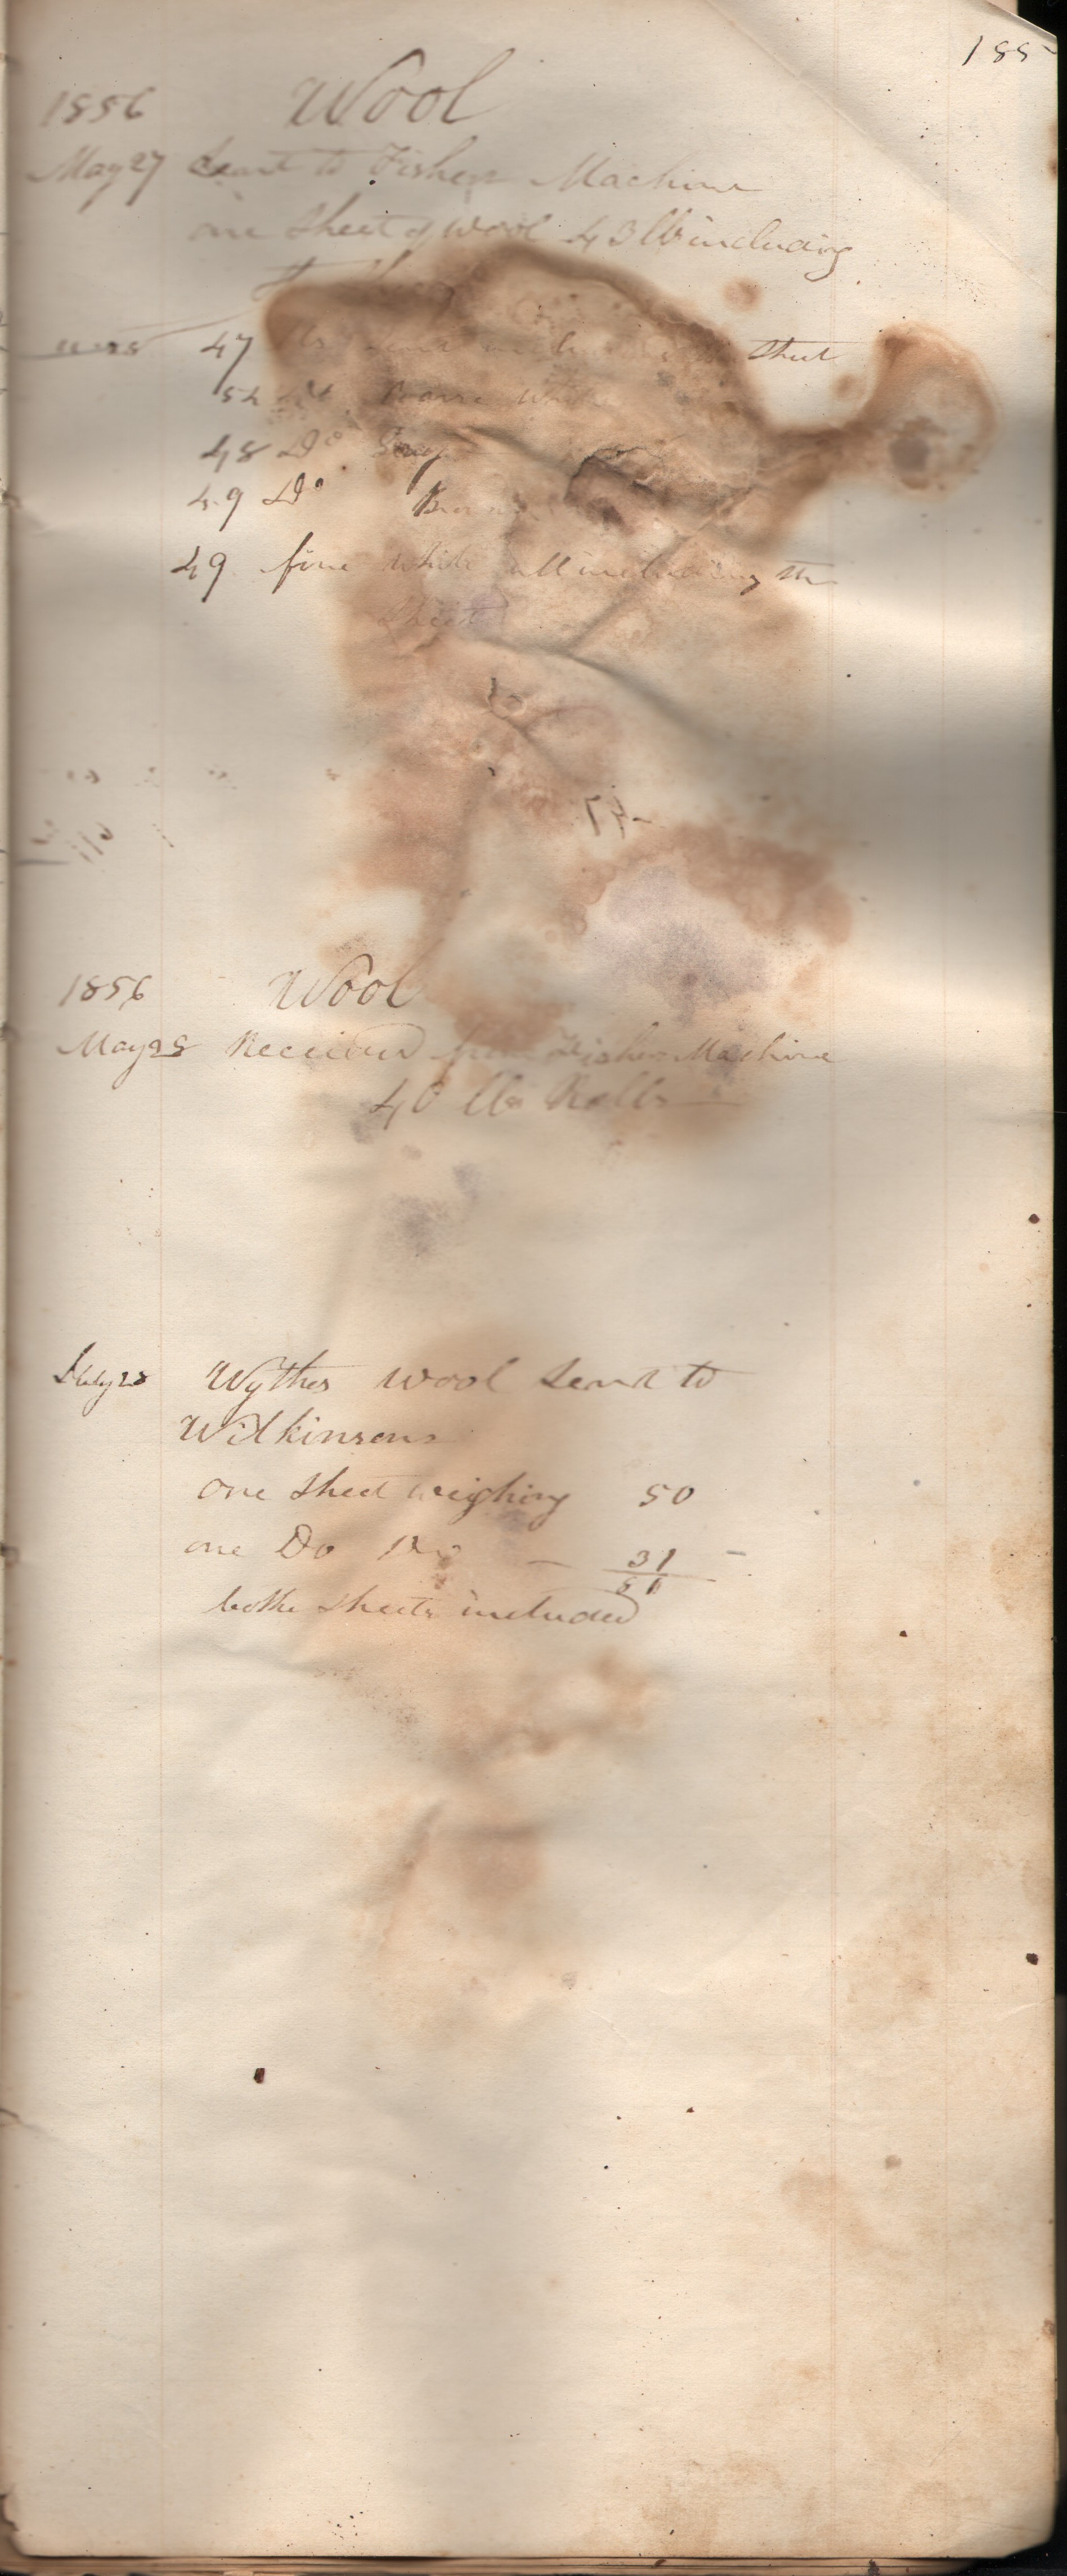 185
1856 Wool
May 27 Sent to Fishers Machine
one sheet of wool 43 lb including
the
47 lbs sheet
52 Do Coarse White
48 Do Gray
49 Do Brown
49 fine white all including the
sheet
47
1856 Wool
May 28 Received from Fishers Machine
40 lbs Rolls
July 28 Wythes wool Sent to
Wilkinsons
one sheet weighing 50
one Do Do — 31 —
81
bothe sheets included